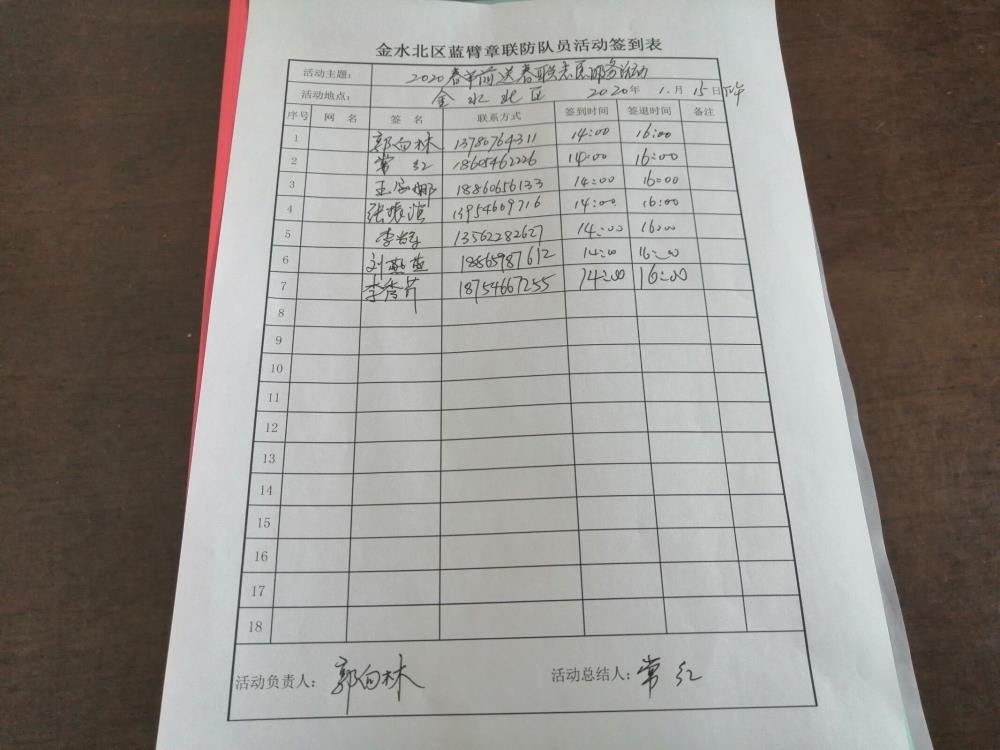 金水北区蓝臂章联防队员活动签到表
活动主题: 2020春节前送春联志愿服务活动
活动地点: 金水北区 2020年 1.月 15日 下午
序号 网 名 签 名 联系方式 签到时间 签退时间 备注
1 郭向林 13780764311 14:00 16:00
2 常红 18605462226 14:00 16:00
3 王 娜 18860656133 14:00 16:00
4 张 滨 13954669716 14:00 16:00
5 李 13562282627 14:00 16:00
6 刘 18865987612 14:00 16:00
7 李秀芹 18754667255 14:00 16:00
8
9
10
11
12
13
14
15
16
17
18
活动负责人: 郭向林 活动总结人: 常红